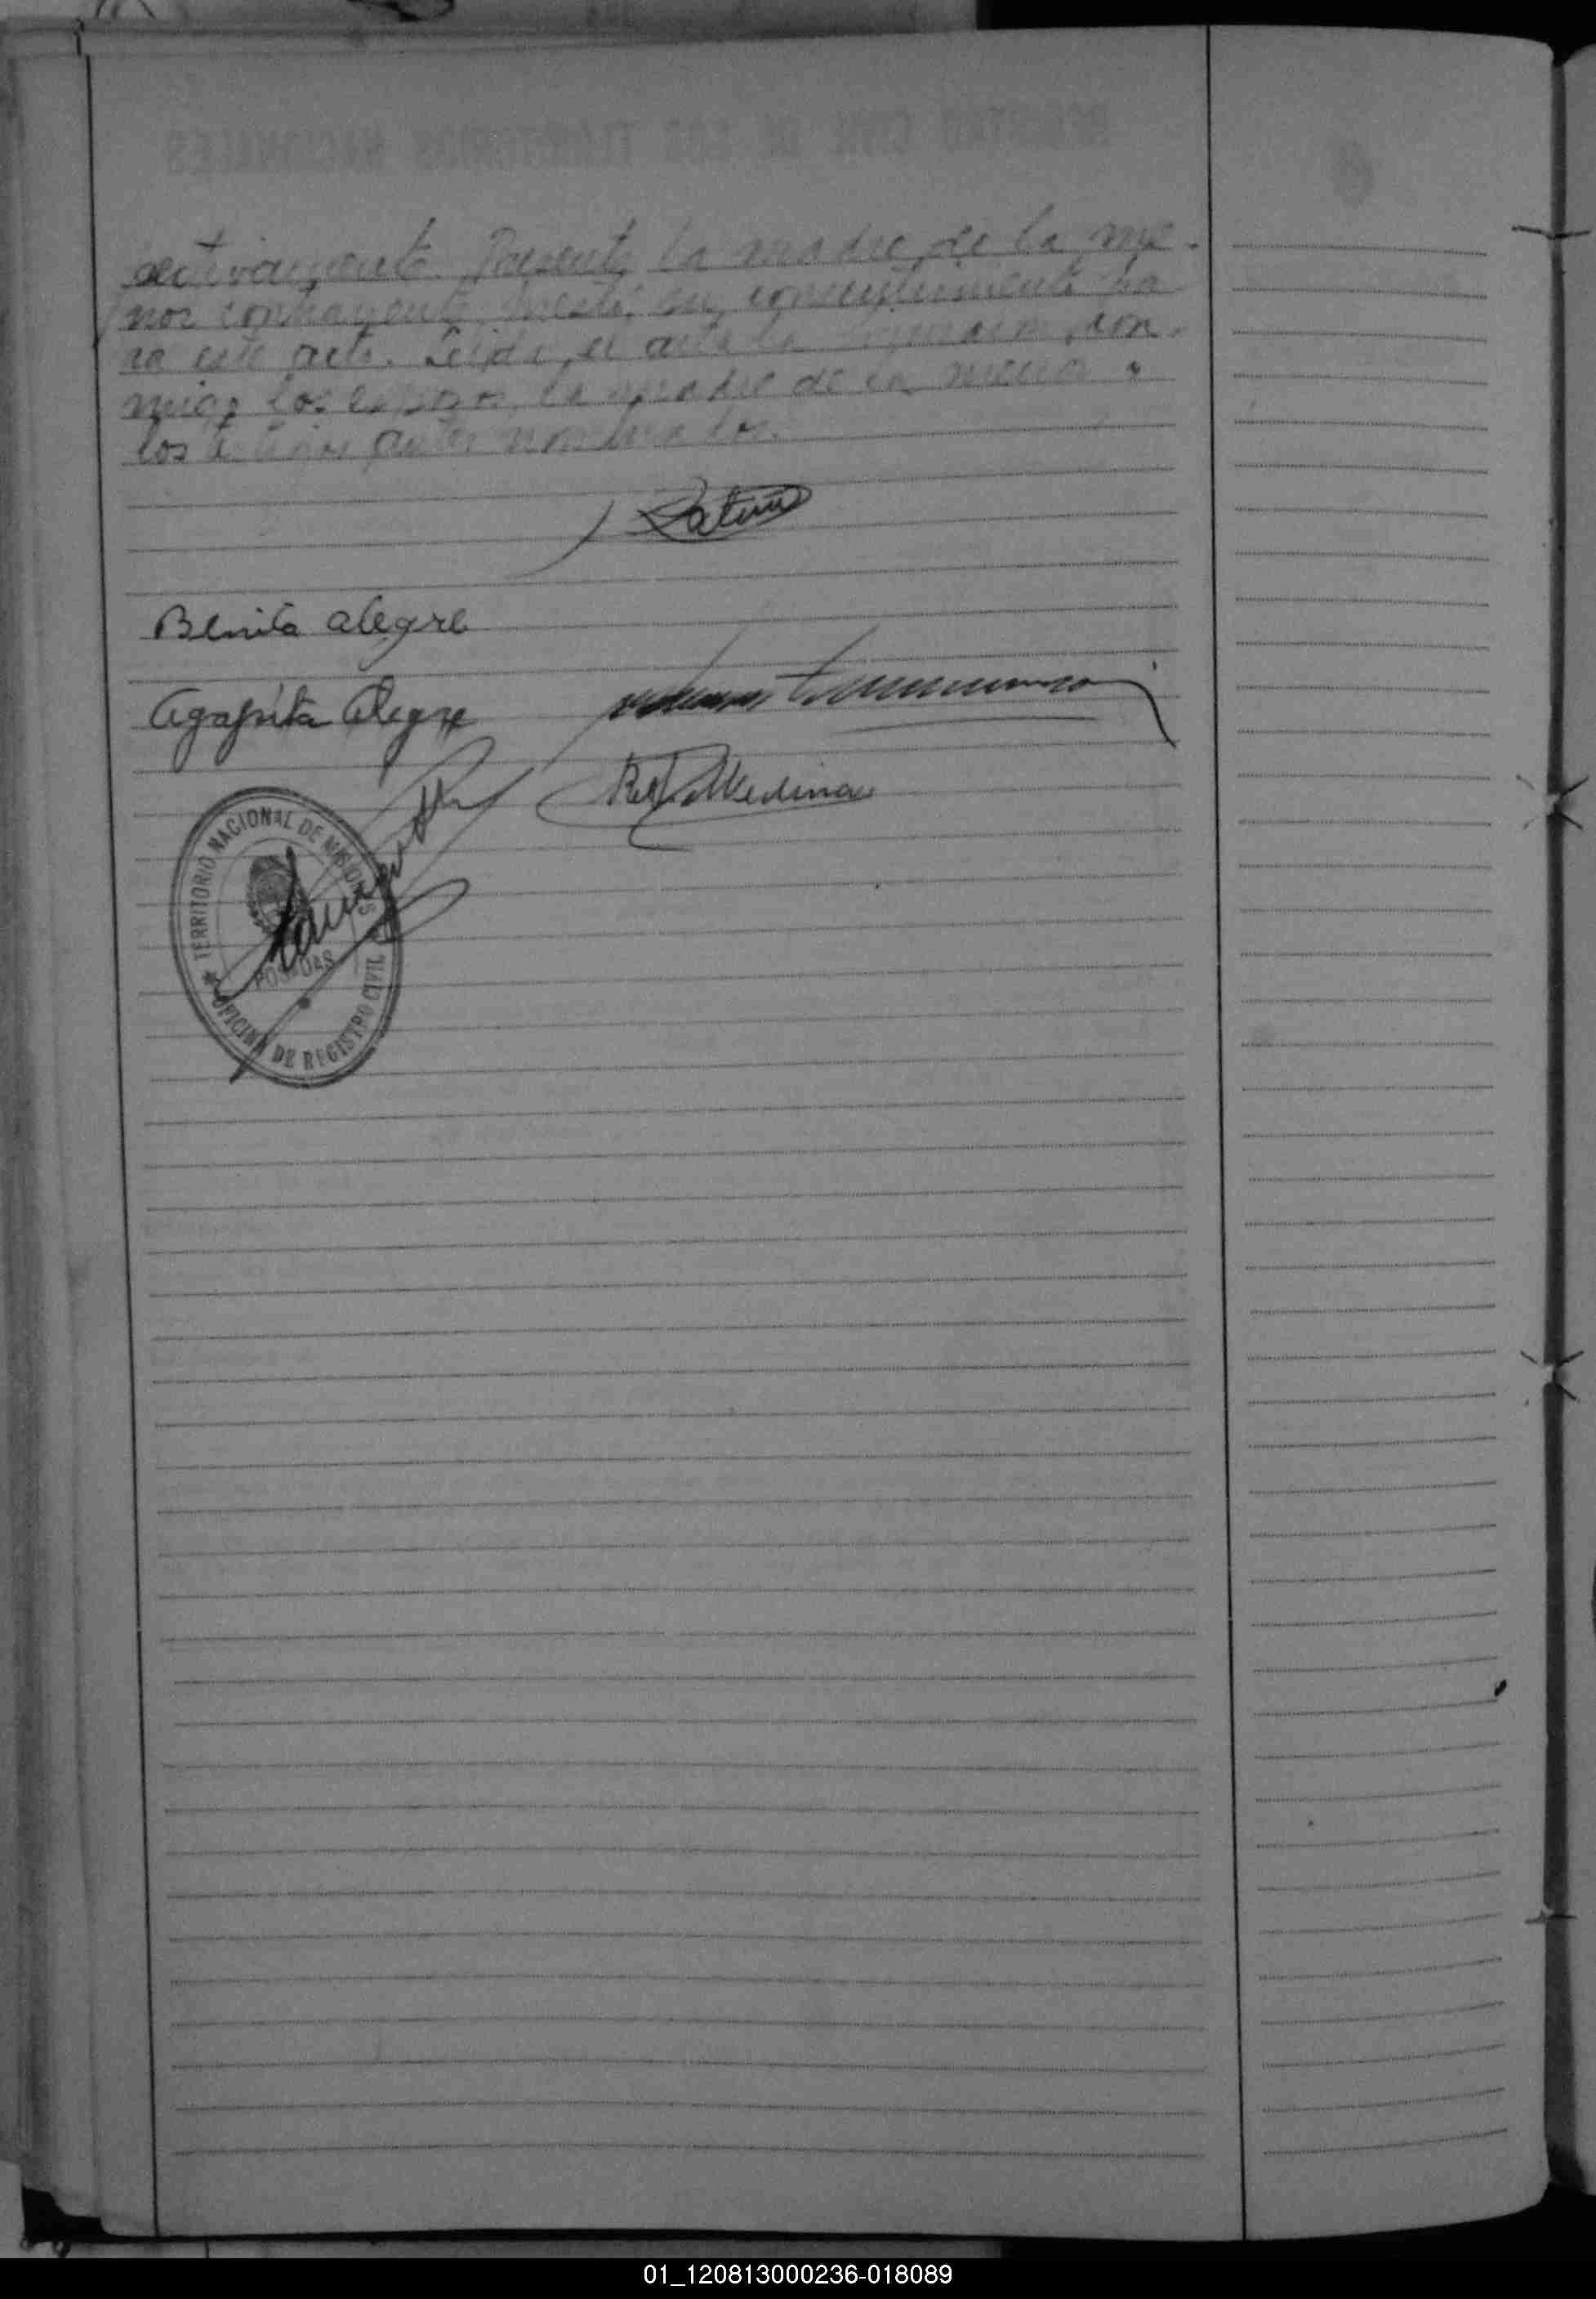 pectivamente. Presente la madre de la me-
nor contrayente prestó su consentimiento pa-
ra este acto. Leída el acta la firmaron con-
migo los esposos, la madre de la menor y
los testigos antes nombrados.
Benita alegre
Agapita Alegre
Medina
TERRITORIO NACIONAL DE MISIONES
POSADAS
OFICINA DE REGISTRO CIVIL
01_120813000236-018089